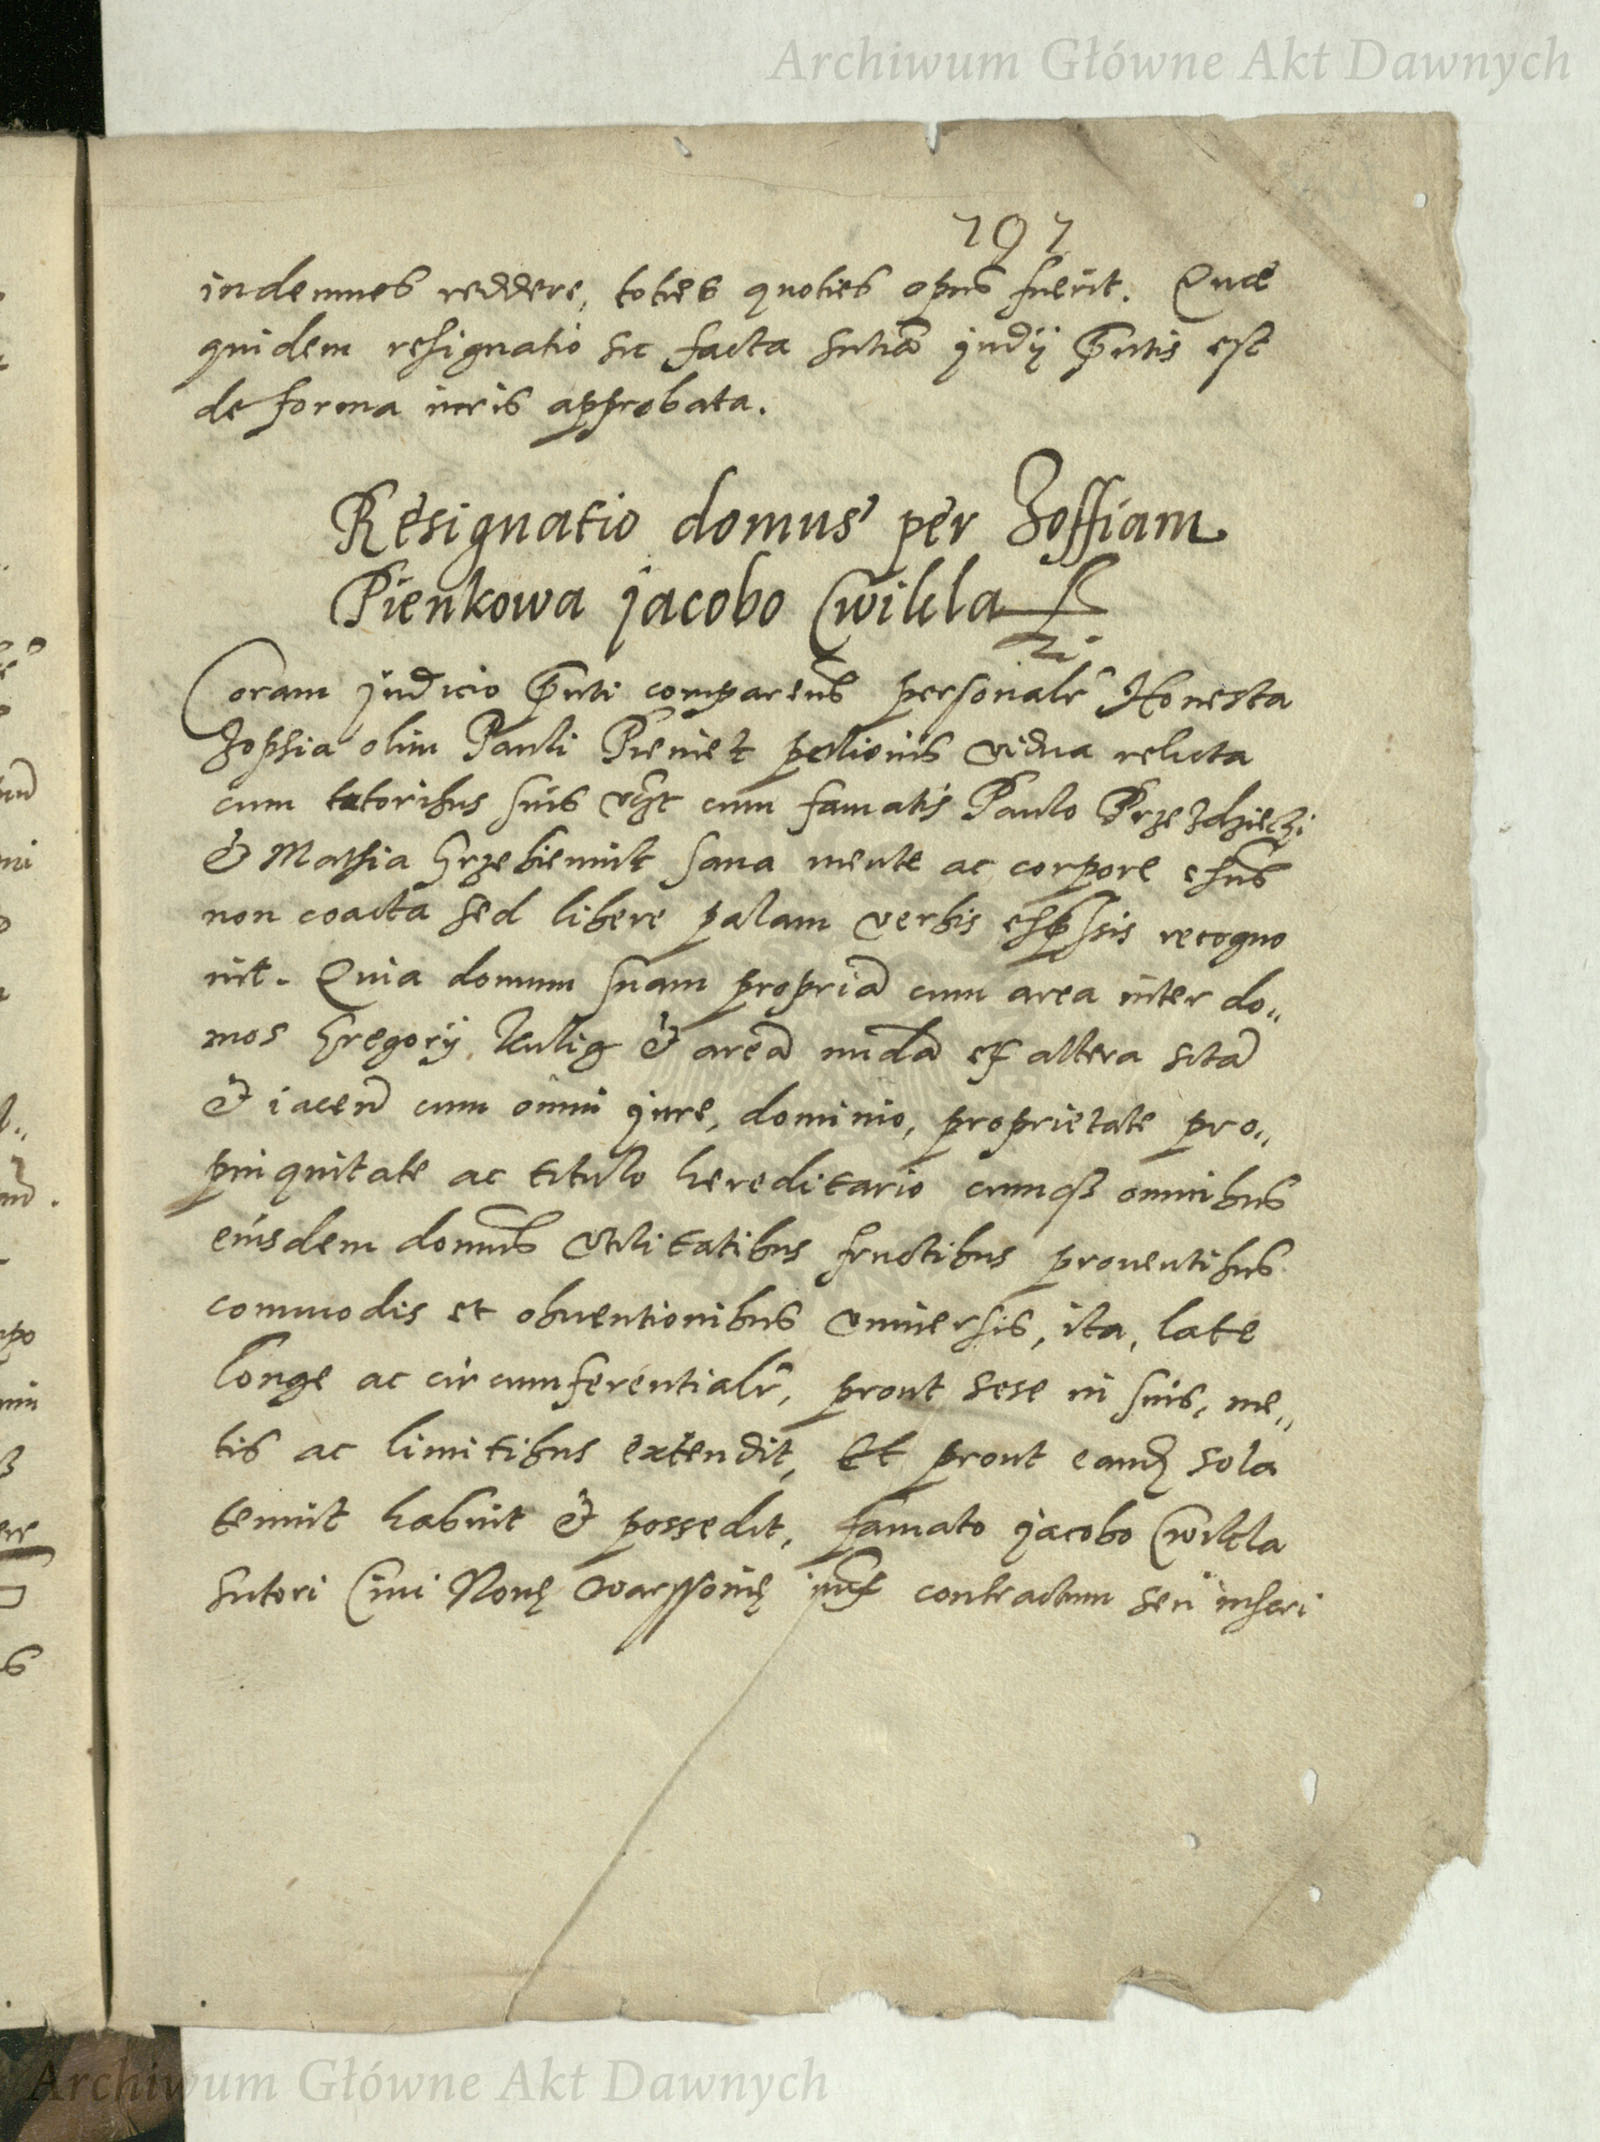 Archiwum Główne Akt Dawnych
797
indemnes reddere, toties quoties opus fuerit. Quæ
quidem resignatio sic facta sntiã judÿ pñtis est
de forma iuris approbata.
Resignatio domus per Zoffiam
Pienkowa jacobo Cwikla
Coram judicio pñti comparens personalr Honesta
Zophia olim Pauli Pieniek pellionis vidua relicta
cum tutoribus suis vcʒt cum famatis Paulo Przezdzieczi
& Mathia Grzebieniuk sana mente ac corpore exñs
non coacta sed libere palam verbis expssis recogno
uit. Quia domum suam propriã cum area inter do„
mos Gregorÿ Kulig & areã nudã ex altera sitã
& iaceñ cum omni jure, dominio, proprietate pro„
pinquitate ac titulo hereditario cumqʒ omnibus
eiusdem domus vtilitatibus fructibus prouentibus
commodis et obuentionibus vniuersis, ita, late
longe ac circumferentialr, prout sese in suis, me„
tis ac limitibus extendit, Et prout eandʒ sola
tenuit habuit & possedit, famato jacobo Cwikla
sutori Ciui Nouę Warssouię iuxᵃ contractum seu inscri
Archiwum Główne Akt Dawnych